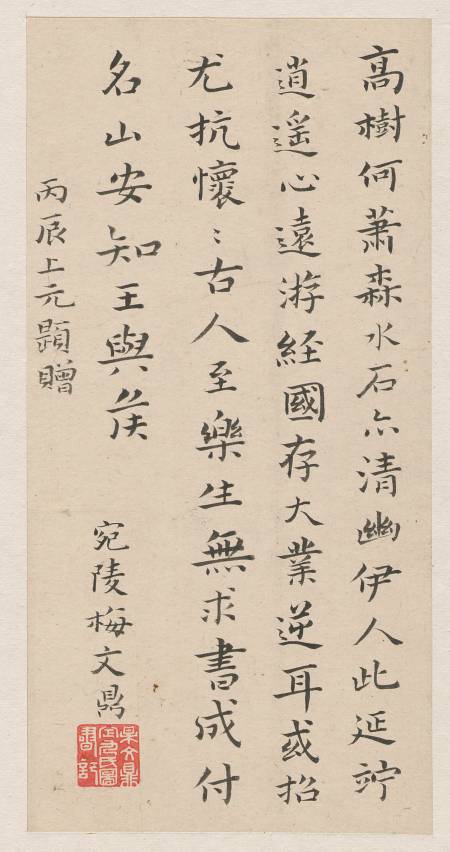 高樹何蕭森水石亦清幽伊人此延竚
逍遥心遠游經國存大業逆耳或招
尤抗懷〻古人至樂生無求書成付
名山安知王與矦
丙辰上元題贈
宛陵梅文鼎